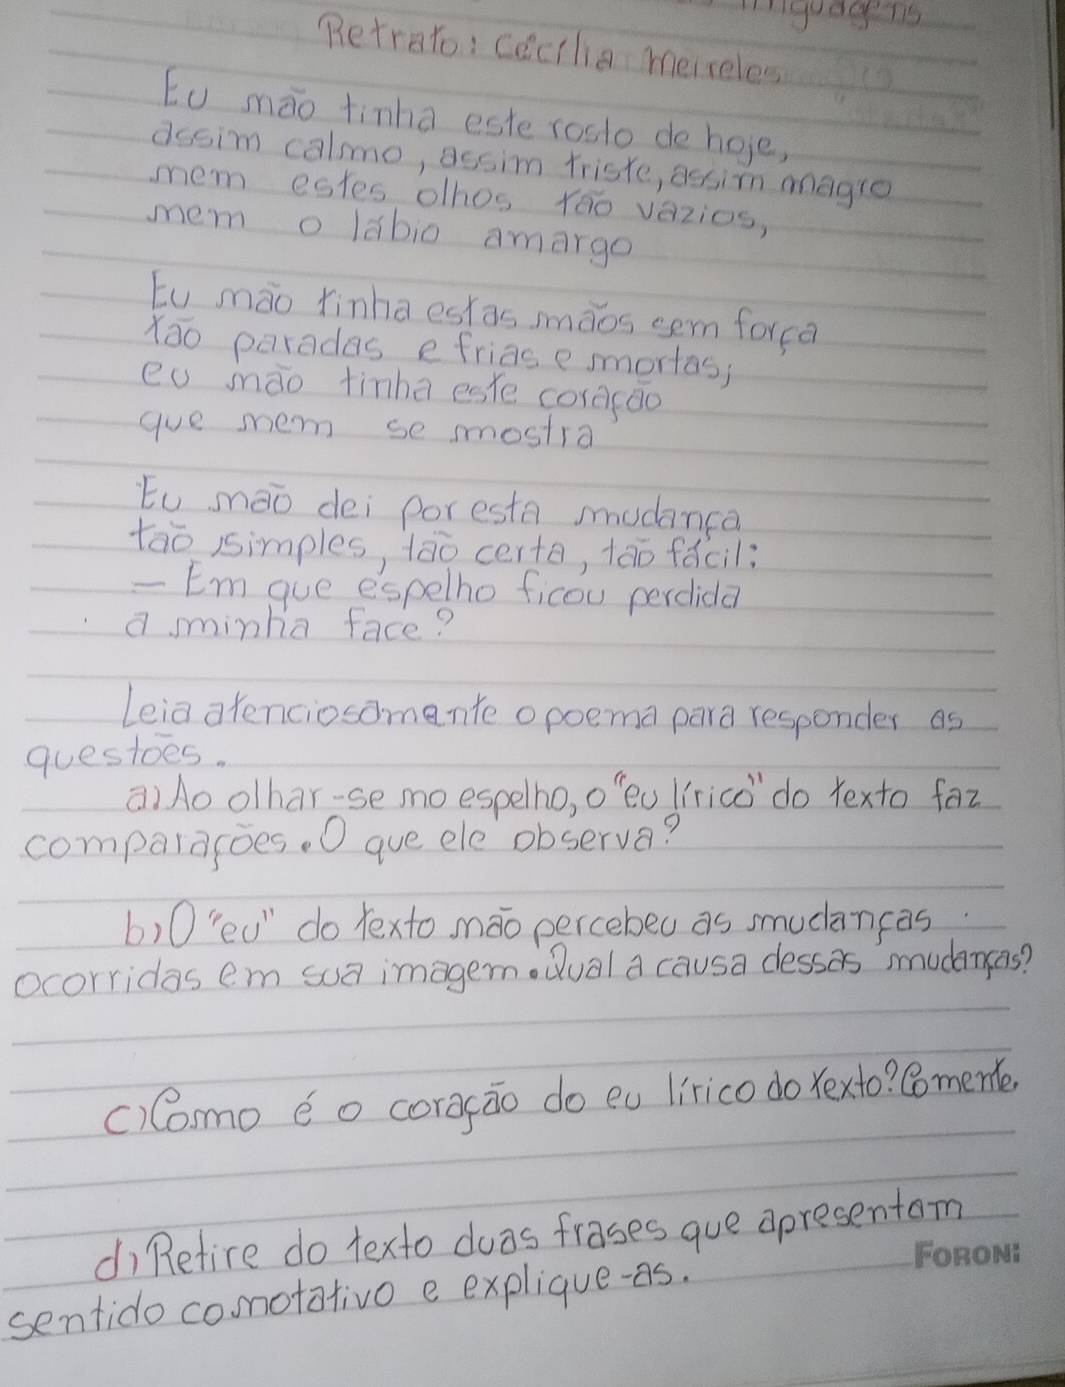 Retrato: Cecília Meireles
Eu não tinha este rosto de hoje,
assim calmo, assim triste, assim magro
nem estes olhos tão vazios,
nem o lábio amargo
Eu não tinha estas mãos sem força
tão paradas e frias e mortas;
eu não tinha este coração
que nem se mostra
Eu não dei por esta mudança
tão simples, tão certa, tão fácil:
- Em que espelho ficou perdida
a minha face?
Leia atenciosamente o poema para responder as
questões.
a) Ao olhar-se no espelho, o "eu lírico" do texto faz
comparações. O que ele observa?
b) O "eu" do texto não percebeu as mudanças
ocorridas em sua imagem. Qual a causa dessas mudanças?
c) Como é o coração do eu lírico do texto? Comente.
d) Retire do texto duas frases que apresentam
FORONI
sentido conotativo e explique-as.